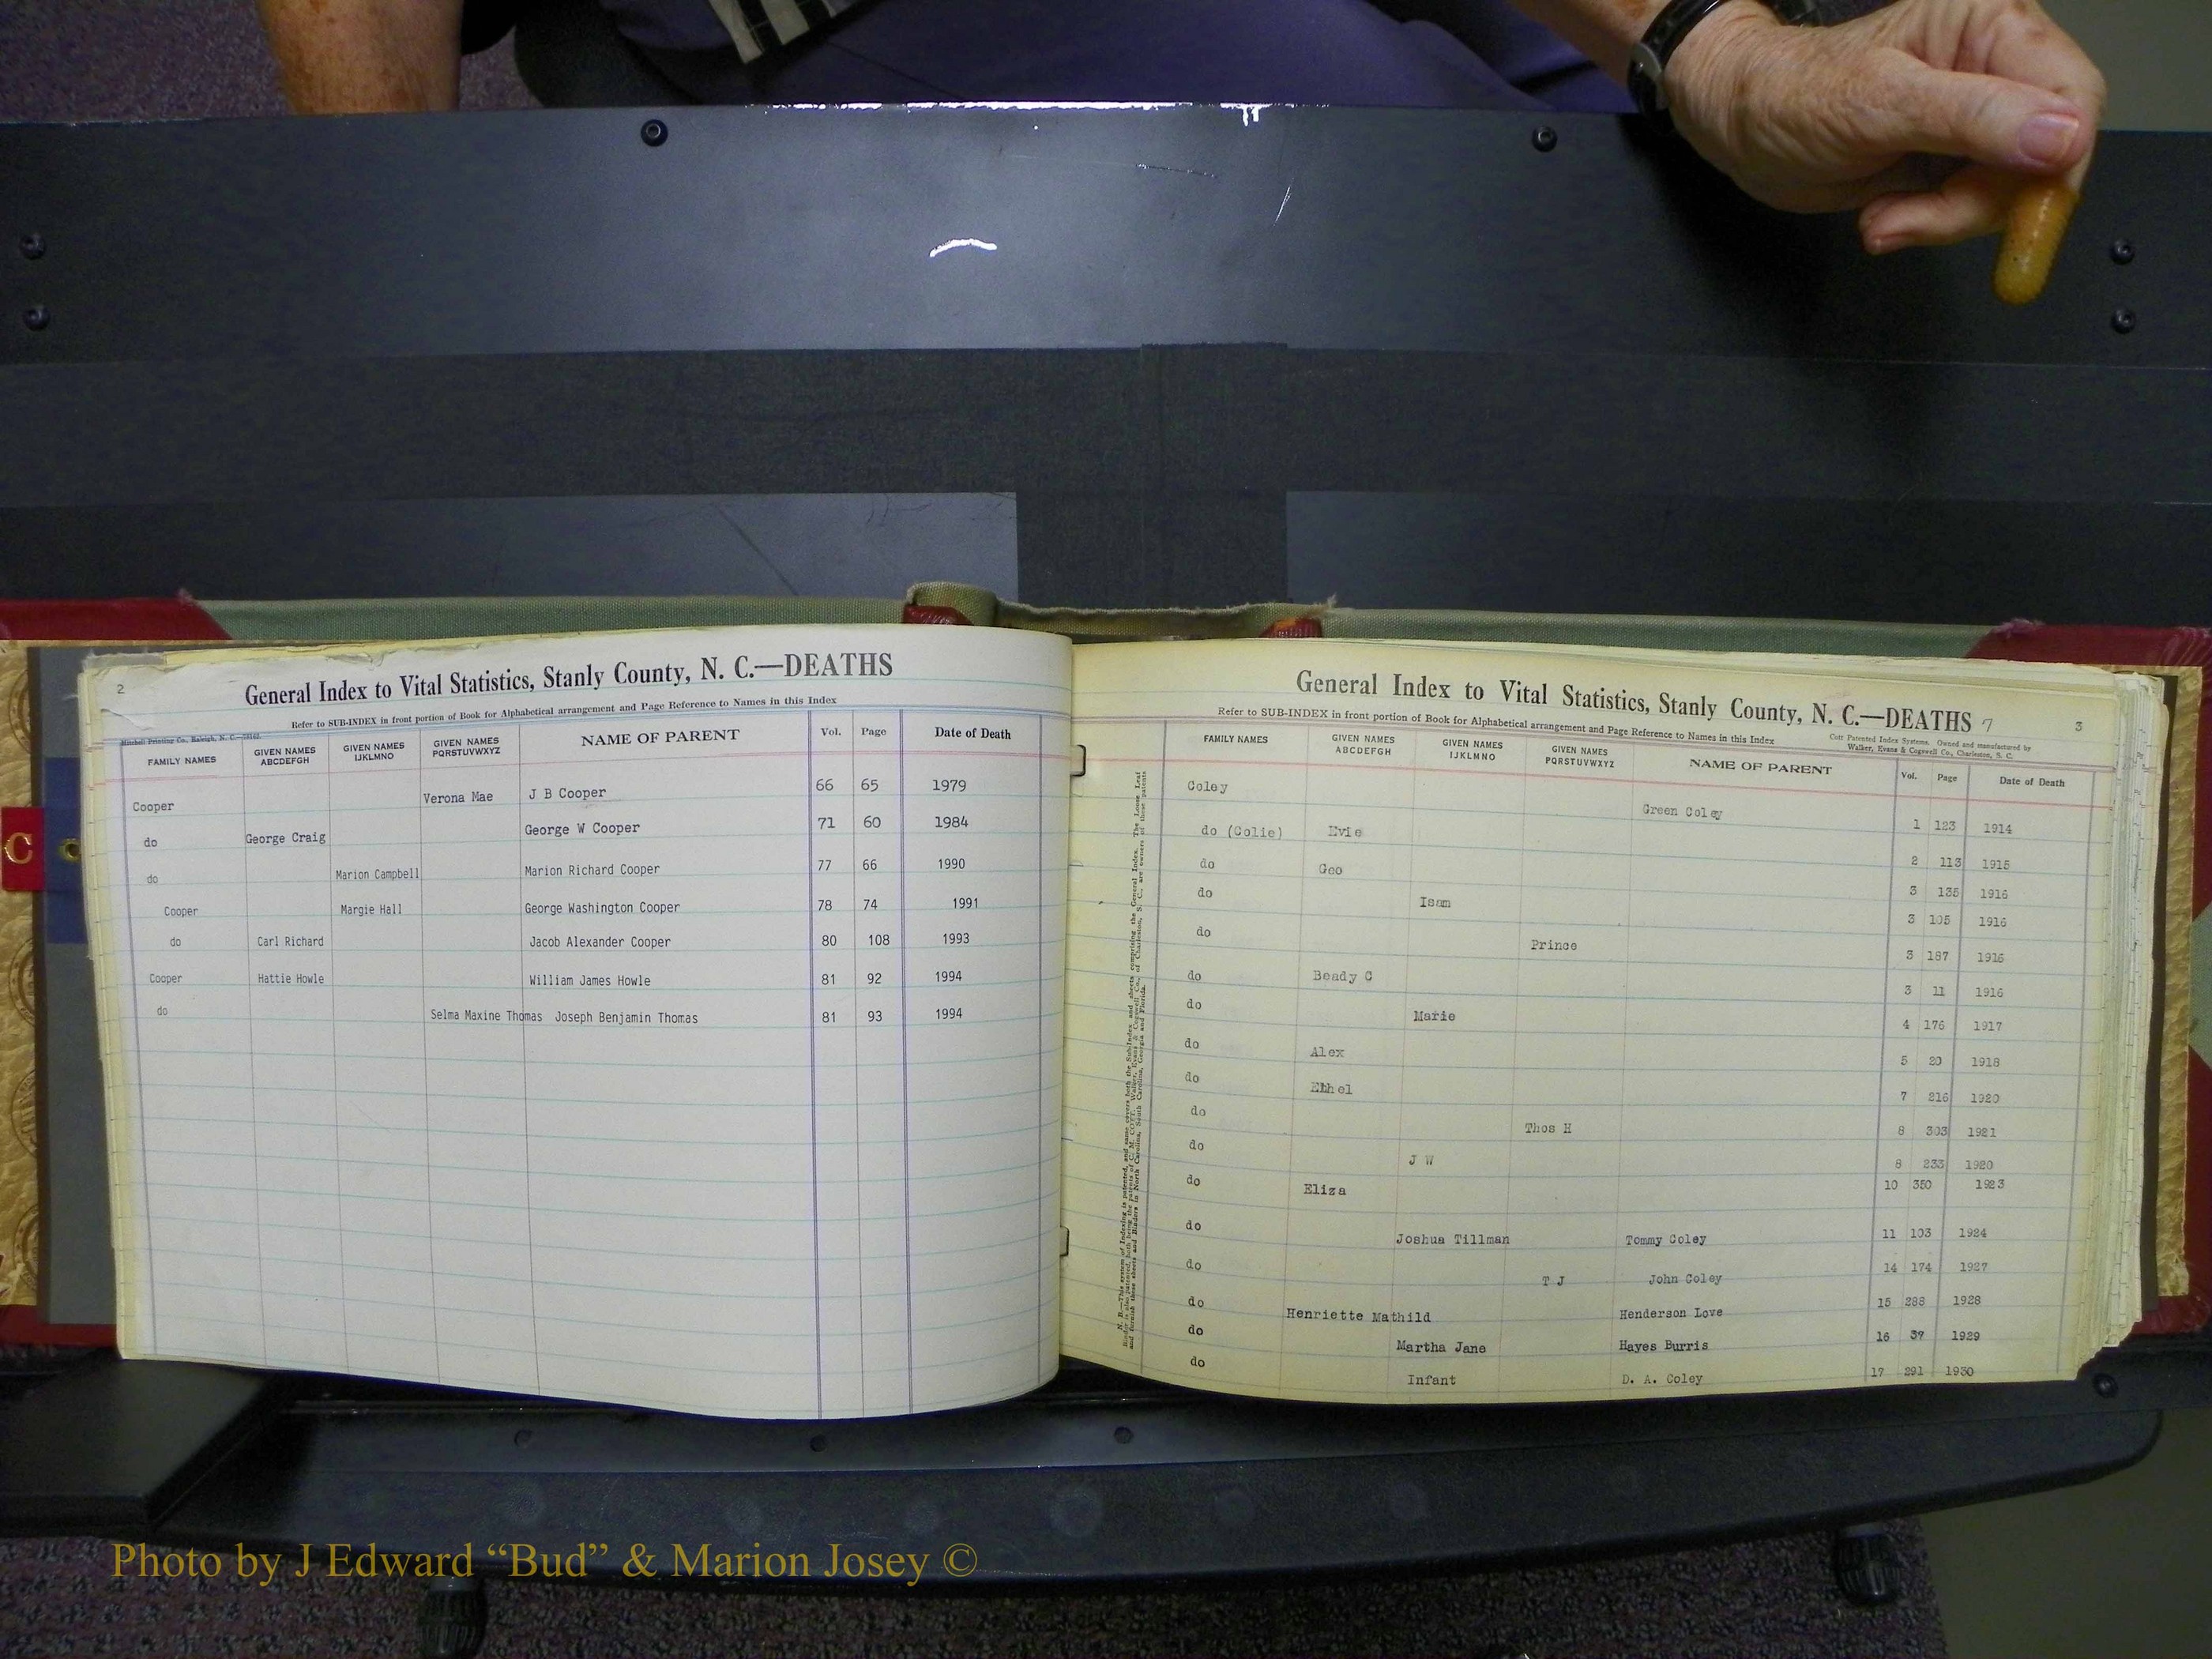 2
General Index to Vital Statistics, Stanly County, N. C.—DEATHS
Refer to SUB-INDEX in front portion of Book for Alphabetical arrangement and Page Reference to Names in this Index
Mitchell Printing Co., Raleigh, N. C.
FAMILY NAMES GIVEN NAMES ABCDEFGH GIVEN NAMES IJKLMNO GIVEN NAMES PQRSTUVWXYZ NAME OF PARENT Vol. Page Date of Death
Cooper Verona Mae J B Cooper 66 65 1979
do George Craig George W Cooper 71 60 1984
do Marion Campbell Marion Richard Cooper 77 66 1990
Cooper Margie Hall George Washington Cooper 78 74 1991
do Carl Richard Jacob Alexander Cooper 80 108 1993
Cooper Hattie Howle William James Howle 81 92 1994
do Selma Maxine Thomas Joseph Benjamin Thomas 81 93 1994
C
General Index to Vital Statistics, Stanly County, N. C.—DEATHS 7 3
Refer to SUB-INDEX in front portion of Book for Alphabetical arrangement and Page Reference to Names in this Index
Cott Patented Index Systems. Owned and manufactured by
Walker, Evans & Cogswell Co., Charleston, S. C.
FAMILY NAMES GIVEN NAMES ABCDEFGH GIVEN NAMES IJKLMNO GIVEN NAMES PQRSTUVWXYZ NAME OF PARENT Vol. Page Date of Death
Coley Green Coley 1 123 1914
do (Colie) Evie 2 113 1915
do Geo 3 135 1916
do Isam 3 105 1916
do Prince 3 187 1916
do Beady C 3 11 1916
do Marie 4 176 1917
do Alex 5 20 1918
do Ethel 7 216 1920
do Thos H 8 303 1921
do J W 8 233 1920
do Eliza 10 350 1923
do Joshua Tillman Tommy Coley 11 103 1924
do T J John Coley 14 174 1927
do Henriette Mathild Henderson Love 15 288 1928
do Martha Jane Hayes Burris 16 37 1929
do Infant D. A. Coley 17 291 1930
Photo by J Edward “Bud” & Marion Josey ©